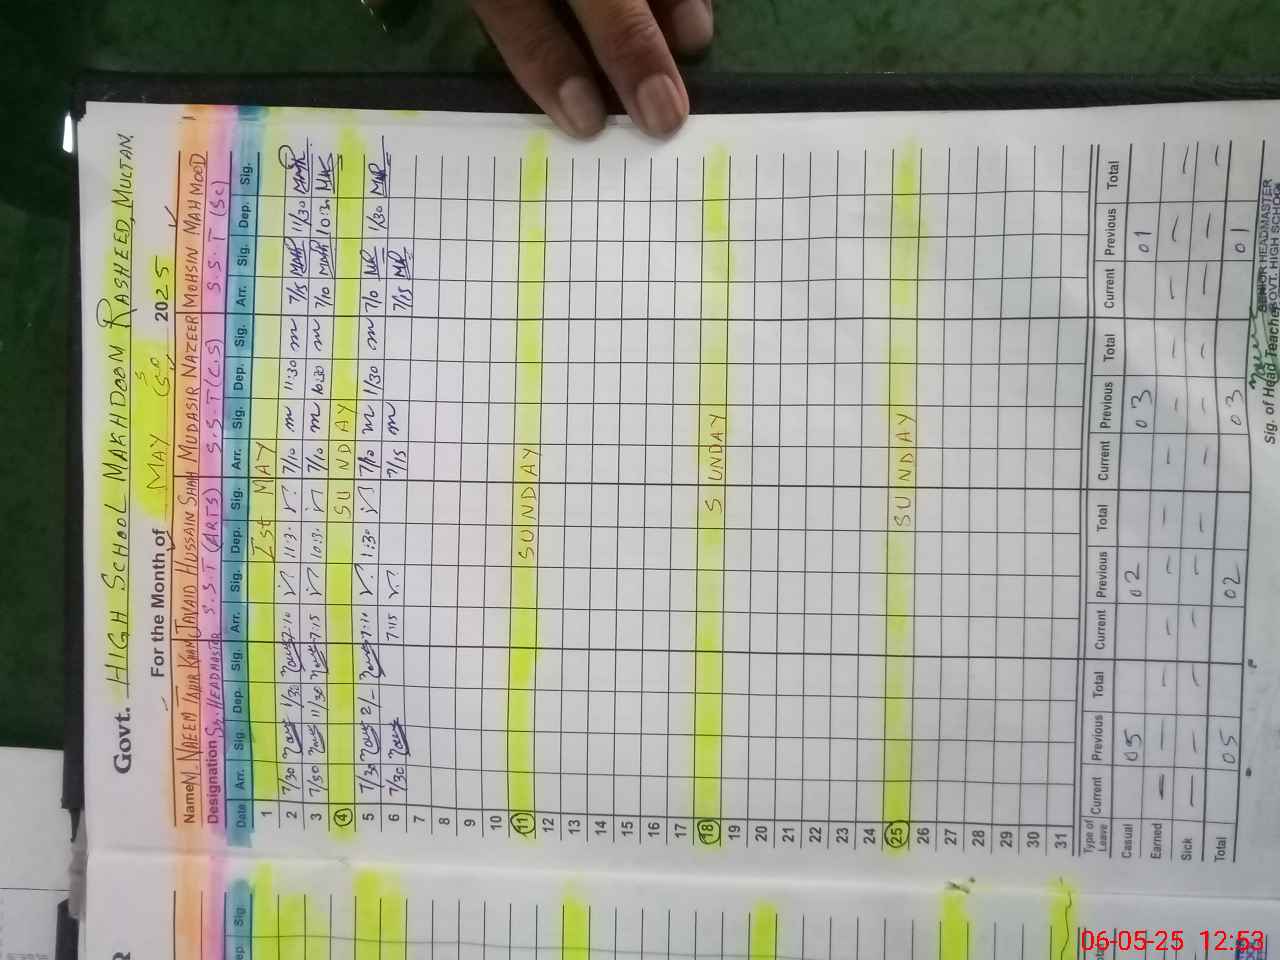 Govt. HIGH SCHOOL MAKHDOOM RASHEED, MULTAN.
For the Month of MAY 2025
Name M. NAEEM TAHIR KHAN JAVAID HUSSAIN SHAH MUDASIR NAZEER MOHSIN MAHMOOD
Designation Sr. HEADMASTER S.S.T (ARTS) S.S.T (C.S) S.S.T (Sc)
Date Arr. Sig. Dep. Sig. Arr. Sig. Dep. Sig. Arr. Sig. Dep. Sig. Arr. Sig. Dep. Sig.
1 Ist MAY
2 7/30 1/30 7:10 11:3. 7/10 11:30 7/15 11/30
3 7/30 11/30 7:15 10:3. 7/10 10:30 7/10 10:3.
4 SUNDAY
5 7/30 2/- 7:10 1:30 7/10 1/30 7/10 1/30
6 7/30 7:15 7/15 7/15
7
8
9
10
11 SUNDAY
12
13
14
15
16
17
18 SUNDAY
19
20
21
22
23
24
25 SUNDAY
26
27
28
29
30
31
Type of Leave Current Previous Total Current Previous Total Current Previous Total Current Previous Total
Casual 05 02 03 01
Earned — — — — — — —
Sick — — — — — — — —
Total 05 02 03 01 —
Sig. of Head Teacher
SENIOR HEADMASTER
GOVT. HIGH SCHOOL
Sig.
ep.
06-05-25 12:53